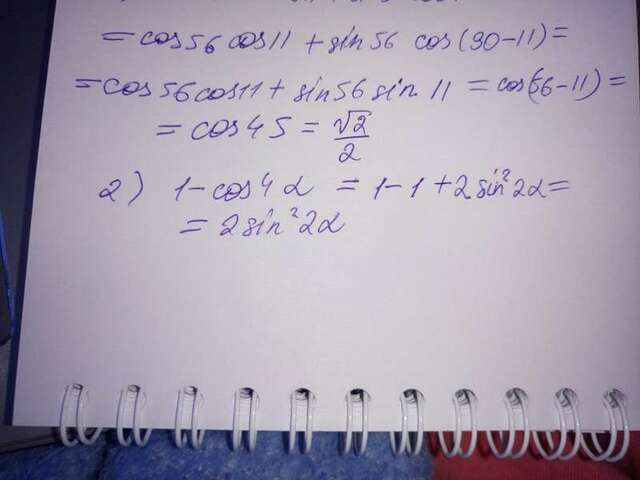 = cos 56 cos 11 + sin 56 cos (90 - 11) =
= cos 56 cos 11 + sin 56 sin 11 = cos(56 - 11) =
= cos 45 = √2/2
2) 1 - cos 4α = 1 - 1 + 2 sin² 2α =
= 2 sin² 2α